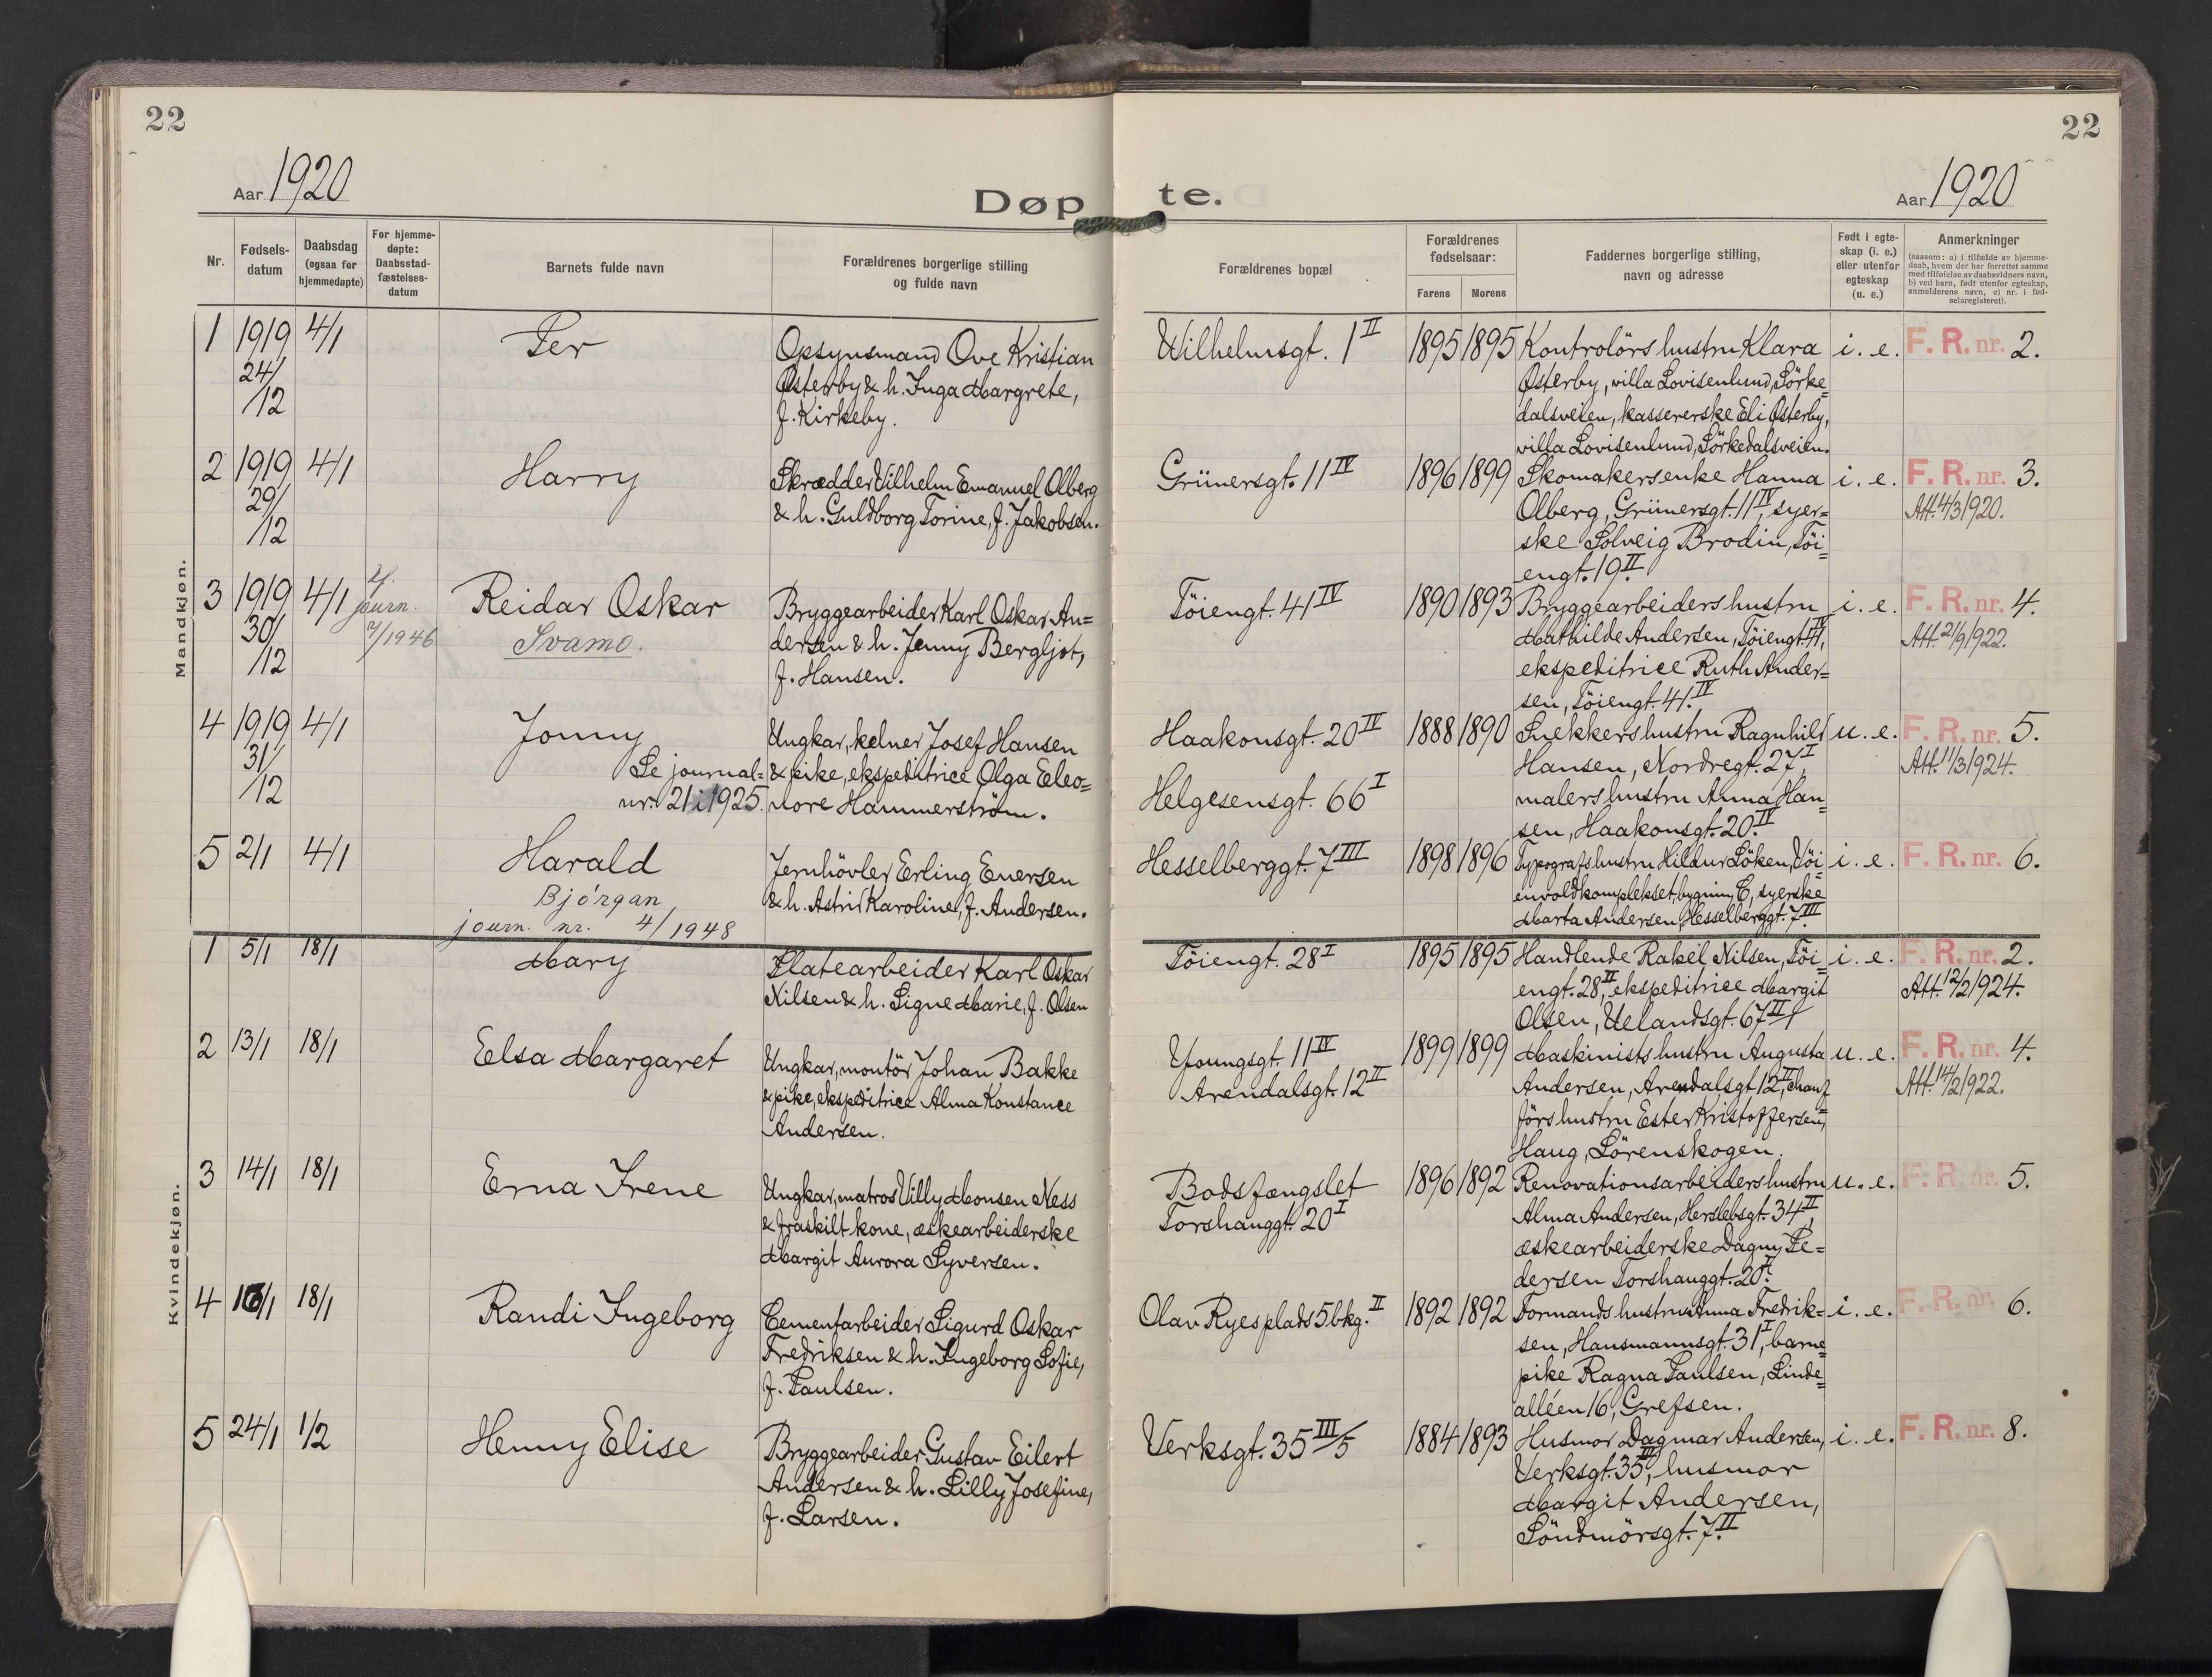 22
22
Aar 1920
Døpte.
Aar 1920
Nr.
Fødsels-
datum
Daabsdag
(ogsaa for
hjemmedøpte)
For hjemme-
døpte:
Daabsstad-
fæstelses-
datum
Barnets fulde navn
Forældrenes borgerlige stilling
og fulde navn
Forældrenes bopæl
Forældrenes
fødselsaar:
Farens
Morens
Faddernes borgerlige stilling,
navn og adresse
Født i egte-
skap (i. e.)
eller utenfor
egteskap
(u. e.)
Anmerkninger
(saasom: a) i tilfælde av hjemme-
daab, hvem der har forrettet samme
med tilføielse av daabsvidners navn,
b) ved barn, født utenfor egteskap,
anmelderens navn, c) nr. i fød-
selsregisteret).
Mandkjøn.
1
1919
24/
/12
4/1
Per
Opsynsmand Ove Kristian
Østerby & h. Inga Margrete,
f. Kirkeby.
Wilhelmsgt. 1 II
1895
1895
Kontrolörs hustru Klara
Østerby, villa Lovisenlund, Sörke=
dalsveien, kassererske Eli Østerby,
villa Lovisenlund, Sörkedalsveien.
i. e.
F. R. nr. 2.
2
1919
29/
/12
4/1
Harry
Skrædder Vilhelm Emanuel Olberg
& h. Guldborg Torine, f. Jakobsen.
Grünersgt. 11 IV
1896
1899
Skomakersenke Hanna
Olberg, Grünersgt. 11 IV, syer=
ske Solveig Brodin, Töi=
engt. 19 II.
i. e.
F. R. nr. 3.
Att. 4/3 1920.
3
1919
30/
/12
4/1
journ.
/1946
Reidar Oskar
Svamo.
Bryggearbeider Karl Oskar An=
dersen & h. Jenny Bergljot,
f. Hansen.
Töiengt. 41 IV
1890
1893
Bryggearbeiders hustru
Mathilde Andersen, Töiengt. 41 IV,
ekspeditrice Ruth Ander=
sen, Töiengt. 41. IV
i. e.
F. R. nr. 4.
Att. 21/9 1922.
4
1919
31/
/12
4/1
Jonny
Se journal=
nr. 21 i 1925.
Ungkar, kelner Josef Hansen
& pike, ekspeditrice Olga Eleo=
nore Hammerström.
Haakonsgt. 20 IV
Helgesensgt. 66 I
1888
1890
Snekkers hustru Ragnhild
Hansen, Nordregt. 27 I,
malers hustru Anna Han=
sen, Haakonsgt. 20. IV
u. e.
F. R. nr. 5.
Att. 11/3 1924.
5
2/1
4/1
Harald
Bjørgan
journ. nr. 4/1948
Jernhövler Erling Enersen
& h. Astrid Karoline, f. Andersen.
Hesselberggt. 7 III
1898
1896
Typografs hustru Hildur Löken, Töi=
envoldkomplekset, bygning C, syerske
Marta Andersen, Hesselberggt. 7 III
i. e.
F. R. nr. 6.
Kvindekjøn.
1
5/1
18/1
Mary
Platearbeider Karl Oskar
Nilsen & h. Signe Marie, f. Olsen
Töiengt. 28 I
1895
1895
Handlende Rakel Nilsen, Töi=
engt. 28 II, ekspeditrice Margit
Olsen, Uelandsgt. 67 II/1
i. e.
F. R. nr. 2.
Att. 12/2 1924.
2
13/1
18/1
Elsa Margaret
Ungkar, montör Johan Bakke
& pike, ekspeditrice Alma Konstance
Andersen.
Youngsgt. 11 IV
Arendalsgt. 12 II
1899
1899
Maskinists hustru Augusta
Andersen, Arendalsgt. 12 II, chauf=
förs hustru Ester Kristoffersen,
Haug, Lörenskogen.
u. e.
F. R. nr. 4.
Att. 14/2 1922.
3
14/1
18/1
Erna Irene
Ungkar, matros Villy Monsen Ness
& fraskilt kone, æskearbeiderske
Margit Aurora Syversen.
Bodsfængslet
Torshauggt. 20 I
1896
1892
Renovationsarbeiders hustru
Alma Andersen, Herslebsgt. 34 II,
æskearbeiderske Dagny Pe=
dersen Torshauggt. 20 I.
u. e.
F. R. nr. 5.
4
16/1
18/1
Randi Ingeborg
Cementarbeider Sigurd Oskar
Fredriksen & h. Ingeborg Sofie,
f. Paulsen.
Olav Ryes plads 5 bkg. II
1892
1892
Formands hustru Anna Fredrik=
sen, Hausmannsgt. 31 I, barne=
pike Ragna Paulsen, Linde=
alléen 16, Grefsen.
i. e.
F. R. nr. 6.
5
24/1
1/2
Henny Elise
Bryggearbeider Gustav Eilert
Andersen & h. Lilly Josefine,
f. Larsen.
Verksgt. 35 III/5
1884
1893
Husmor Dagmar Andersen,
Verksgt. 35 III, husmor
Margit Andersen,
Söndmörsgt. 7. II
i. e.
F. R. nr. 8.